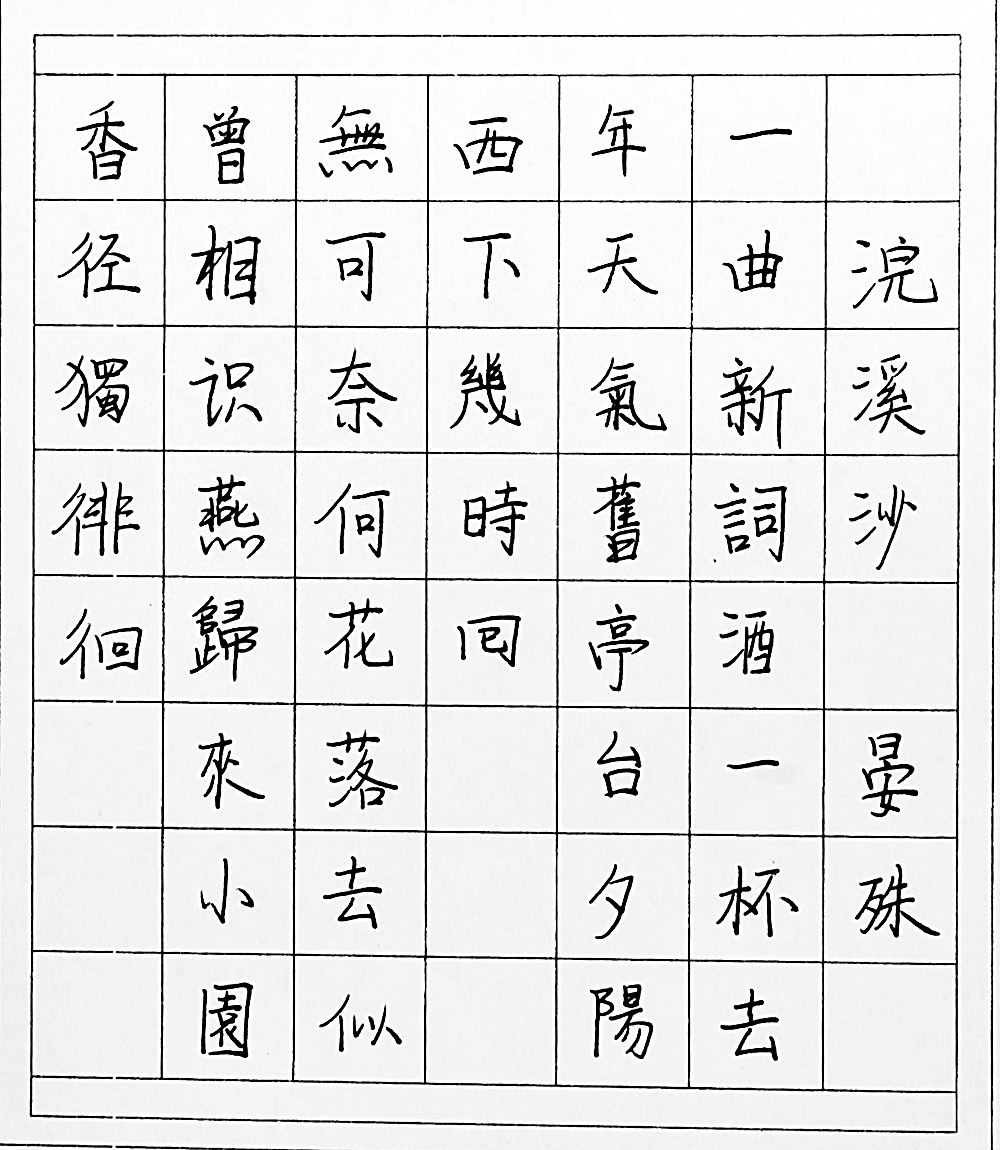 浣溪沙 晏殊
一曲新詞酒一杯去
年天氣舊亭台夕陽
西下幾時回
無可奈何花落去似
曾相识燕歸來小園
香径獨徘徊